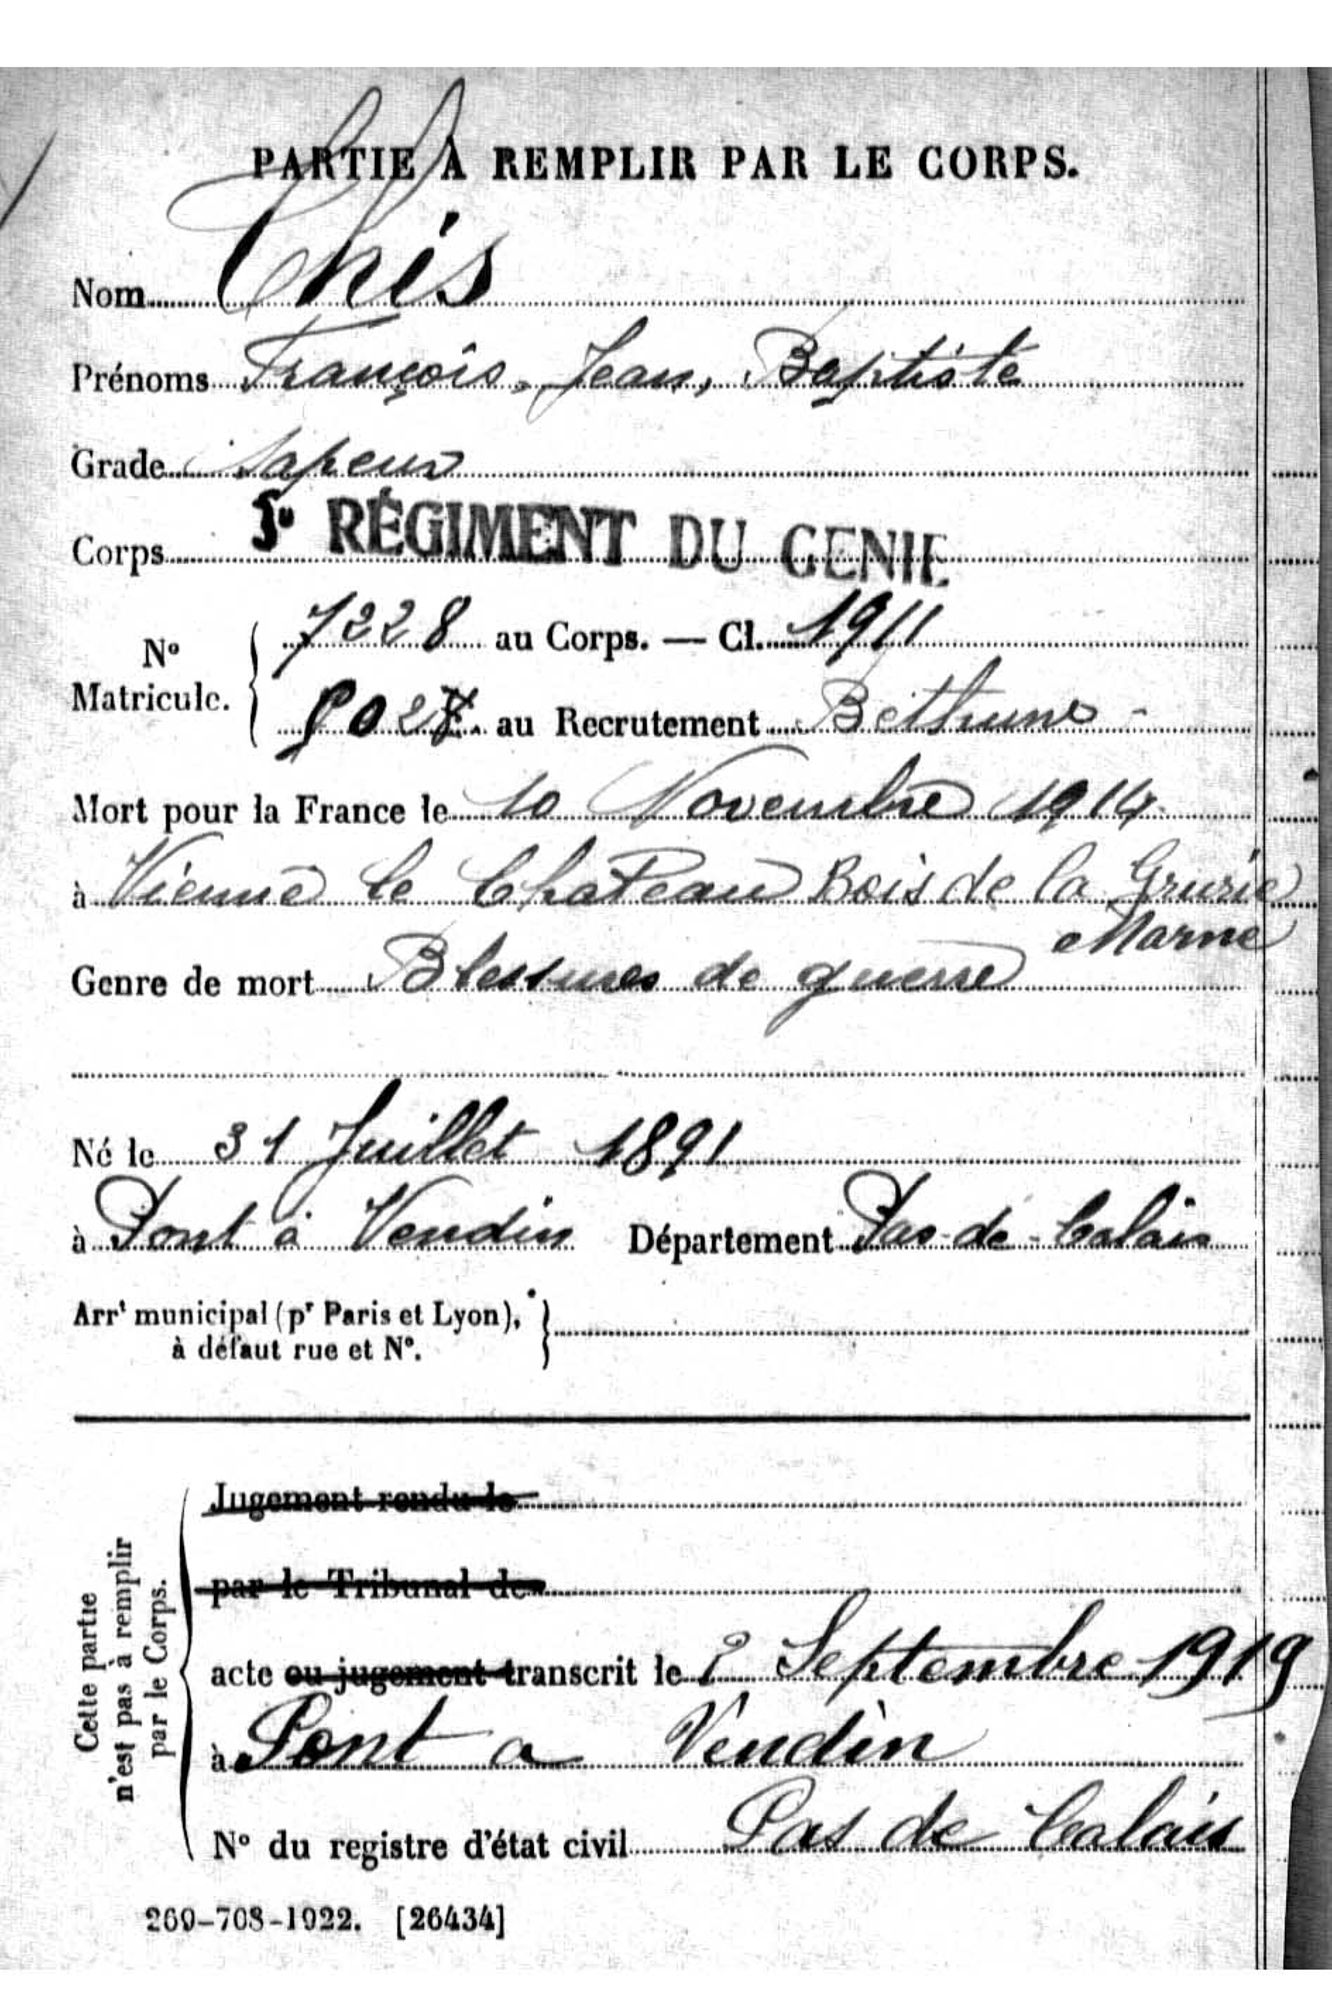 PARTIE À REMPLIR PAR LE CORPS.
Nom This
Prénoms François, Jean, Baptiste
Grade Sapeur
Corps RÉGIMENT DU GÉNIE
N° Matricule. 7228 au Corps. — Cl. 1911
au Recrutement Béthune
Mort pour la France le 10 Novembre 1914
à Vienne le Chateau Bois de la Grurie
Marne
Genre de mort Blessures de guerre
Né le 31 Juillet 1891
à Pont à Vendin Département Pas-de-Calais
Arrt municipal (pr Paris et Lyon),
à défaut rue et N°.
Cette partie
n'est pas à remplir
par le Corps.
Jugement rendu le
par le Tribunal de
acte ou jugement transcrit le 2 Septembre 1919
à Pont a Vendin
N° du registre d'état civil Pas de Calais
269-708-1922. [26434]